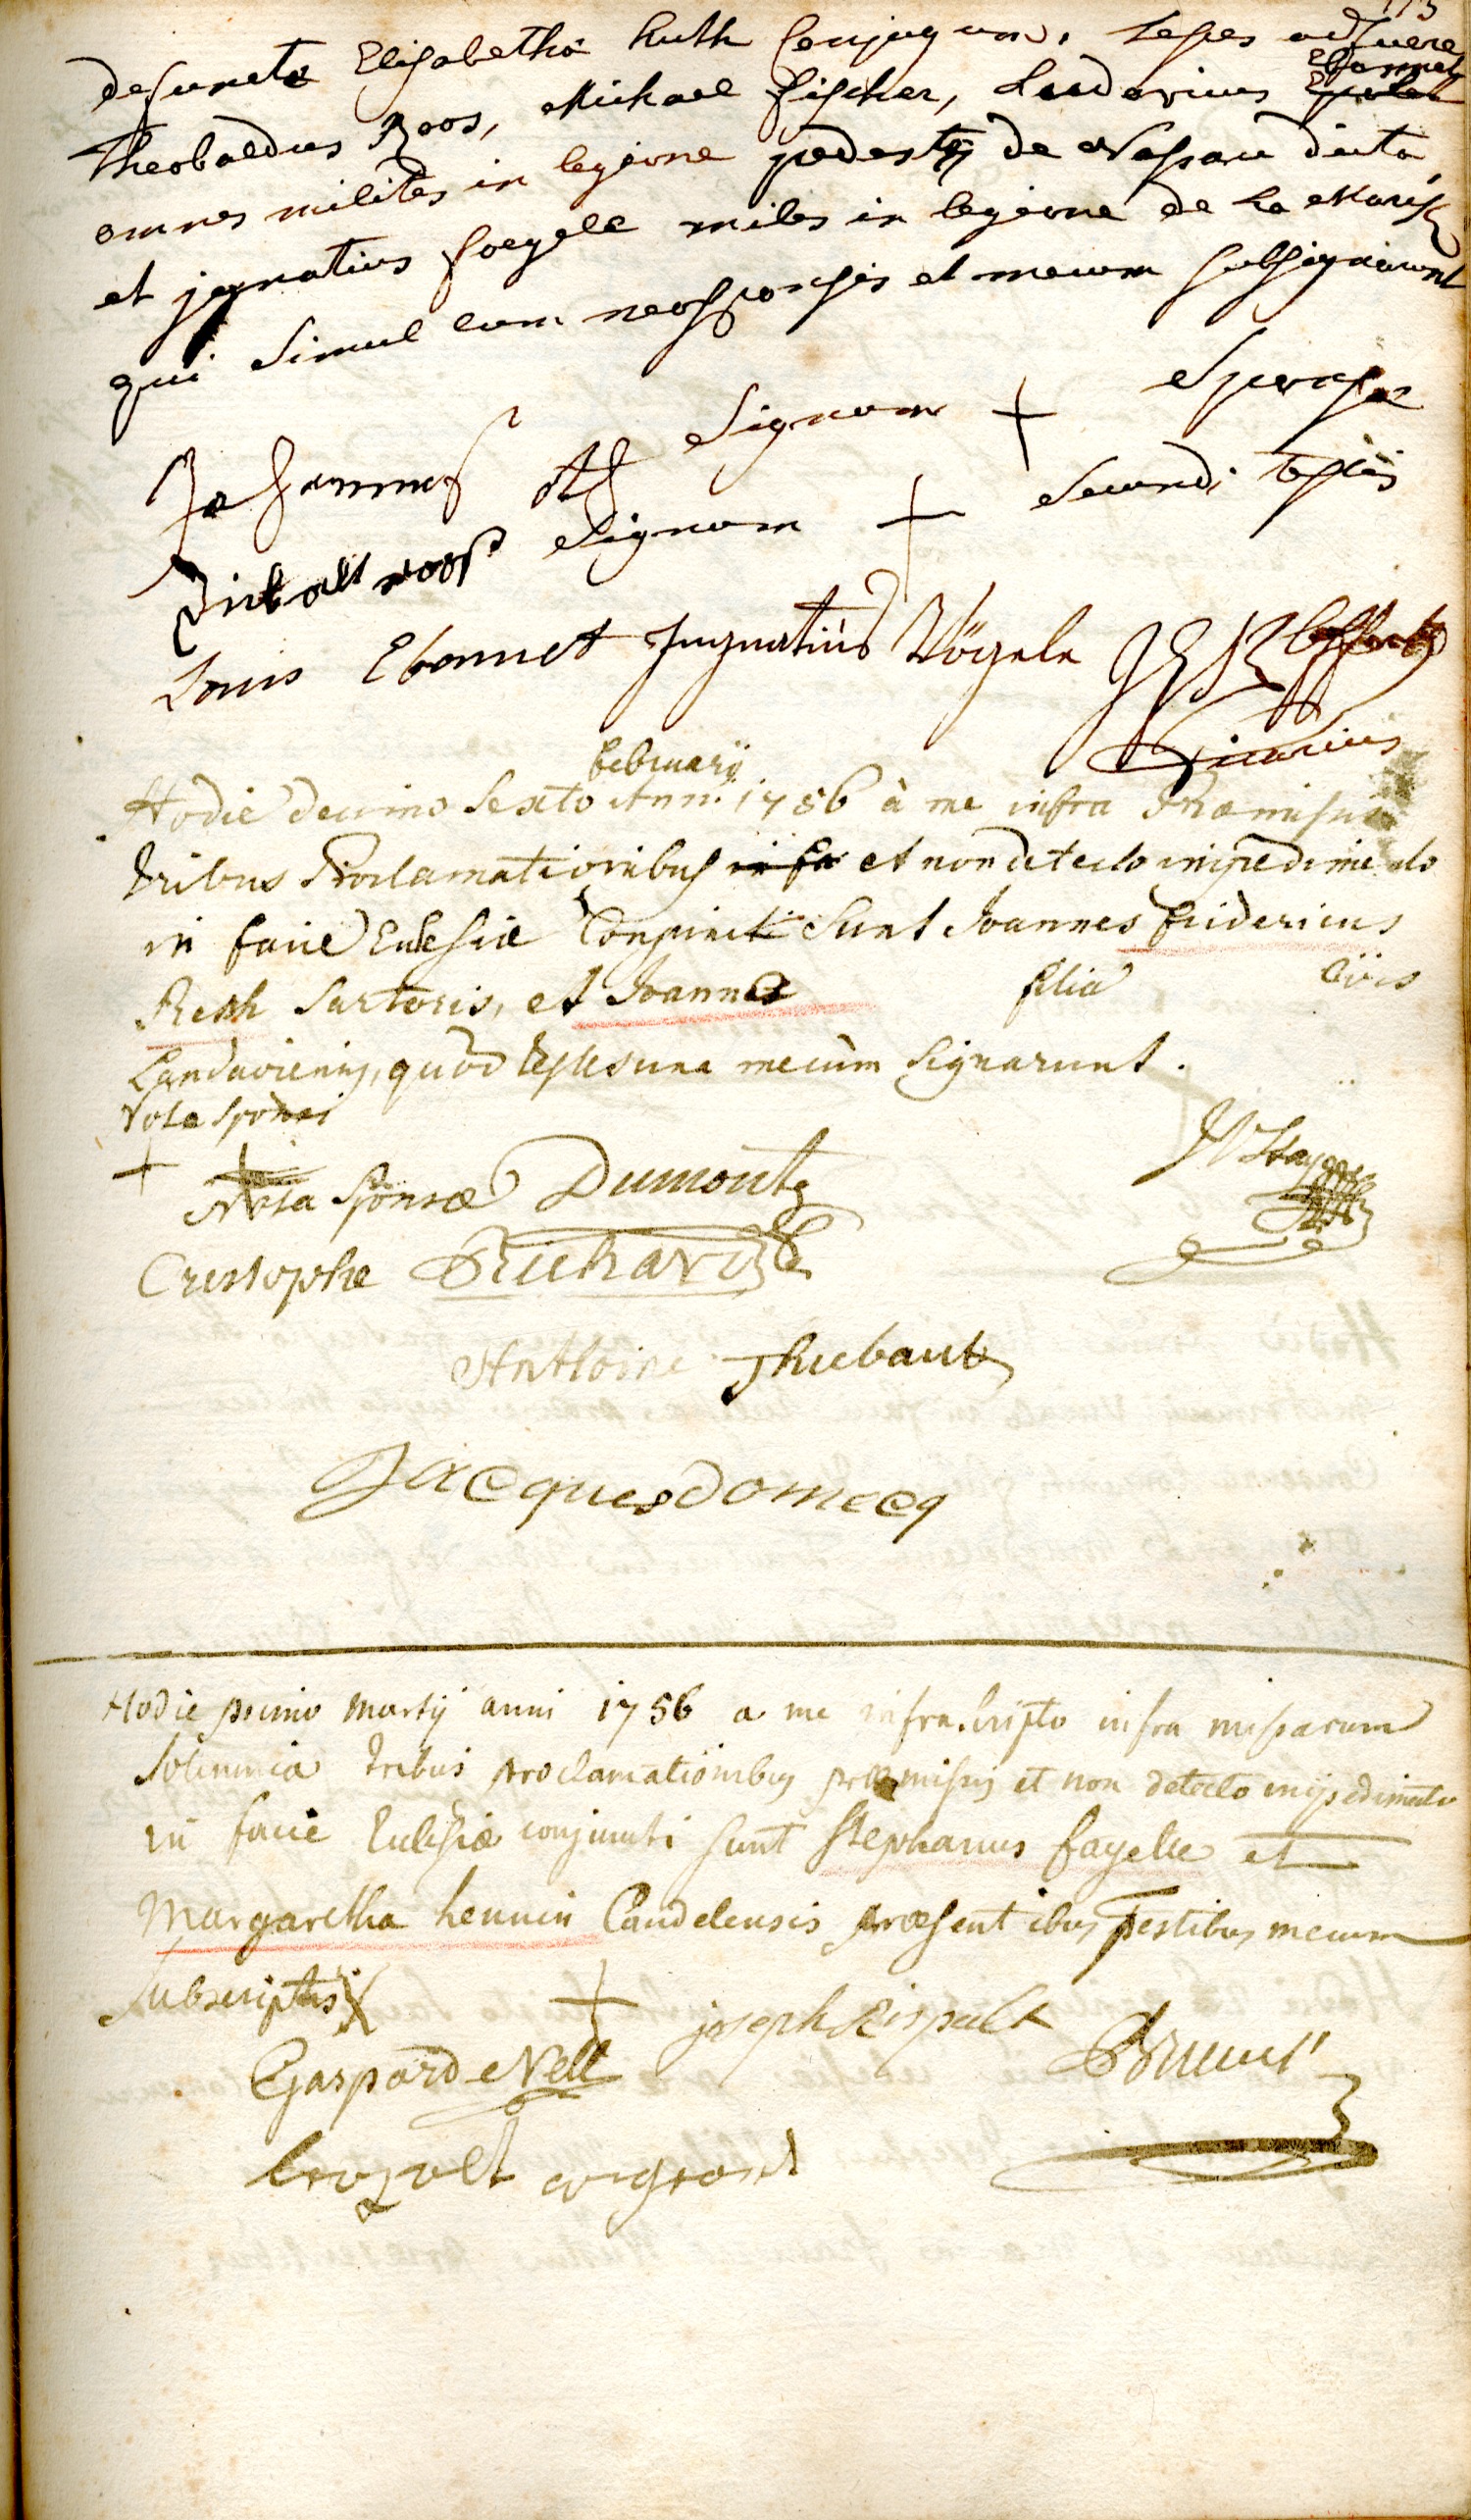 defuncta Elisabetha Ruth Conjugum. Testes adfuere
Theobaldus Roos, Michael fischer, Ludovicus Ebonnet
omnes milites in legione pedestri de Nassau dicta,
et jgnatius foegele miles in legione de La Marck
qui simul cum neosponsis et mecum subsignarunt
Johannes Ott Signum + Sponsae
Dinbalt roos Signum + Secundi testis
Louis Ebonnet Jngnatius Vögele
Vicarius
february
Hodie decimo Sexto Anni 1756 à me infra Praemissis
tribus Proclamationibus infra et non detecto impedimento
in facie Ecclesiae Conjuncti Sunt Joannes fridericus
Resch Sartoris, et Joanna filia civis
Landaviensis, quod testes una mecum Signarunt.
Nota Sponsi
+ + Nota Sponsae Dumont
Cristophe Richard
Anthoine Thiebaut
Jacques domecq
Hodie primo Martij anni 1756 a me infrascripto infra missarum
Solemnia tribus proclamationibus praemissis et non detecto impedimento
in facie Ecclesiae conjuncti sunt Stephanus fayelle et
Margaretha hennin Candelensis praesentibus Testibus mecum
Subscriptis
+ joseph Rispalt
Gaspard Nell
leopolt